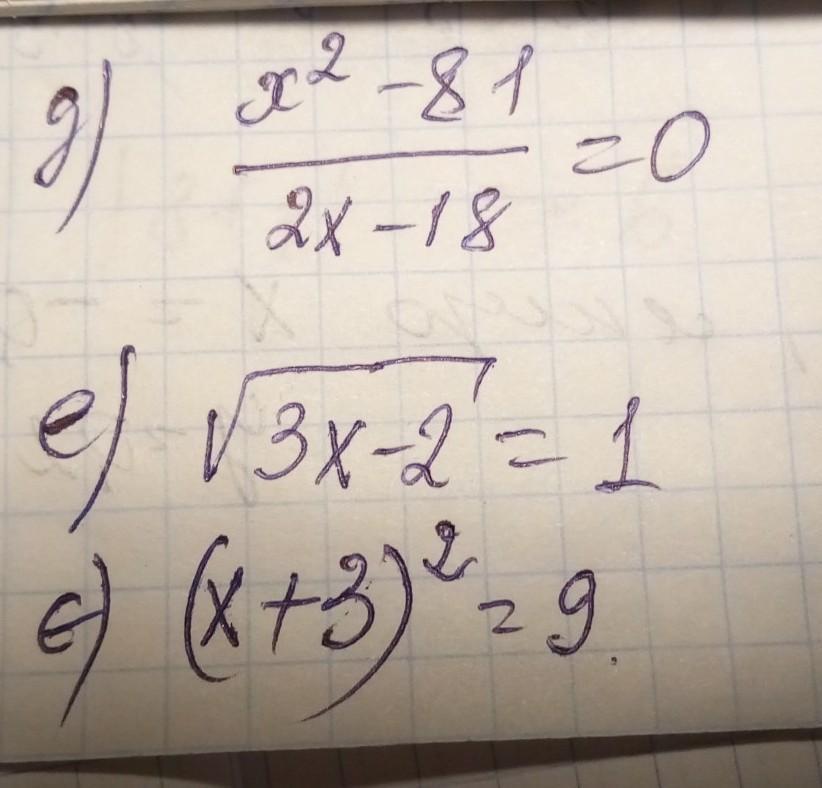 д) x² - 81 / 2x - 18 = 0
е) √3x-2 = 1
є) (x+3)² = 9.